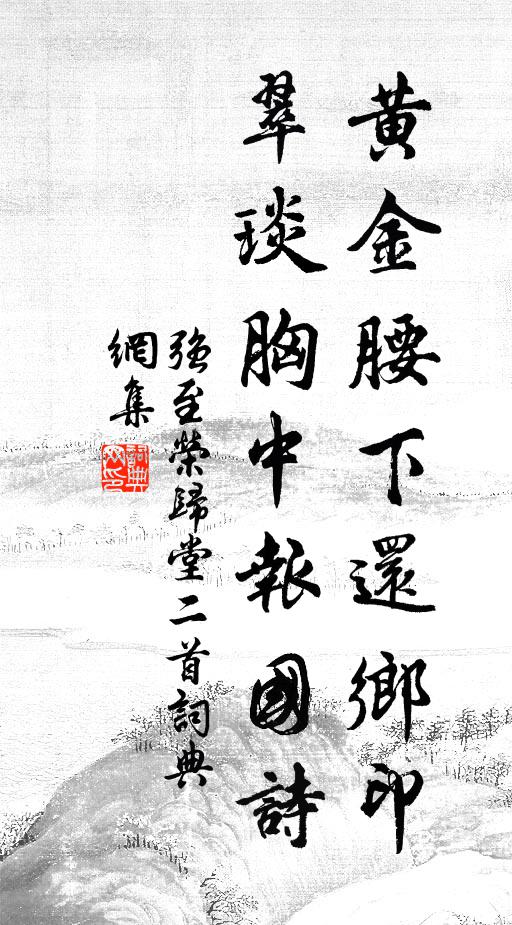 黃金腰下還鄉印
翠琰胸中報國詩
強至榮歸堂二首詞典
網集
詞典
网印